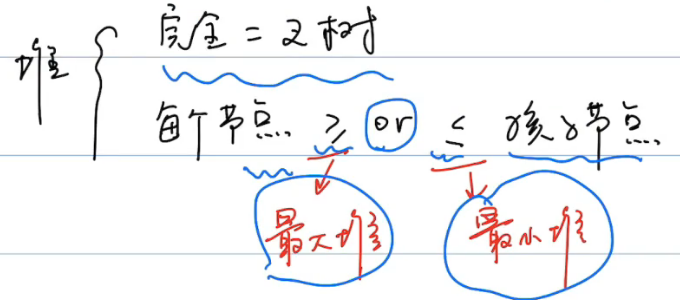 堆 { 完全二叉树
每个节点 ≥ or ≤ 孩子节点
最大堆 最小堆